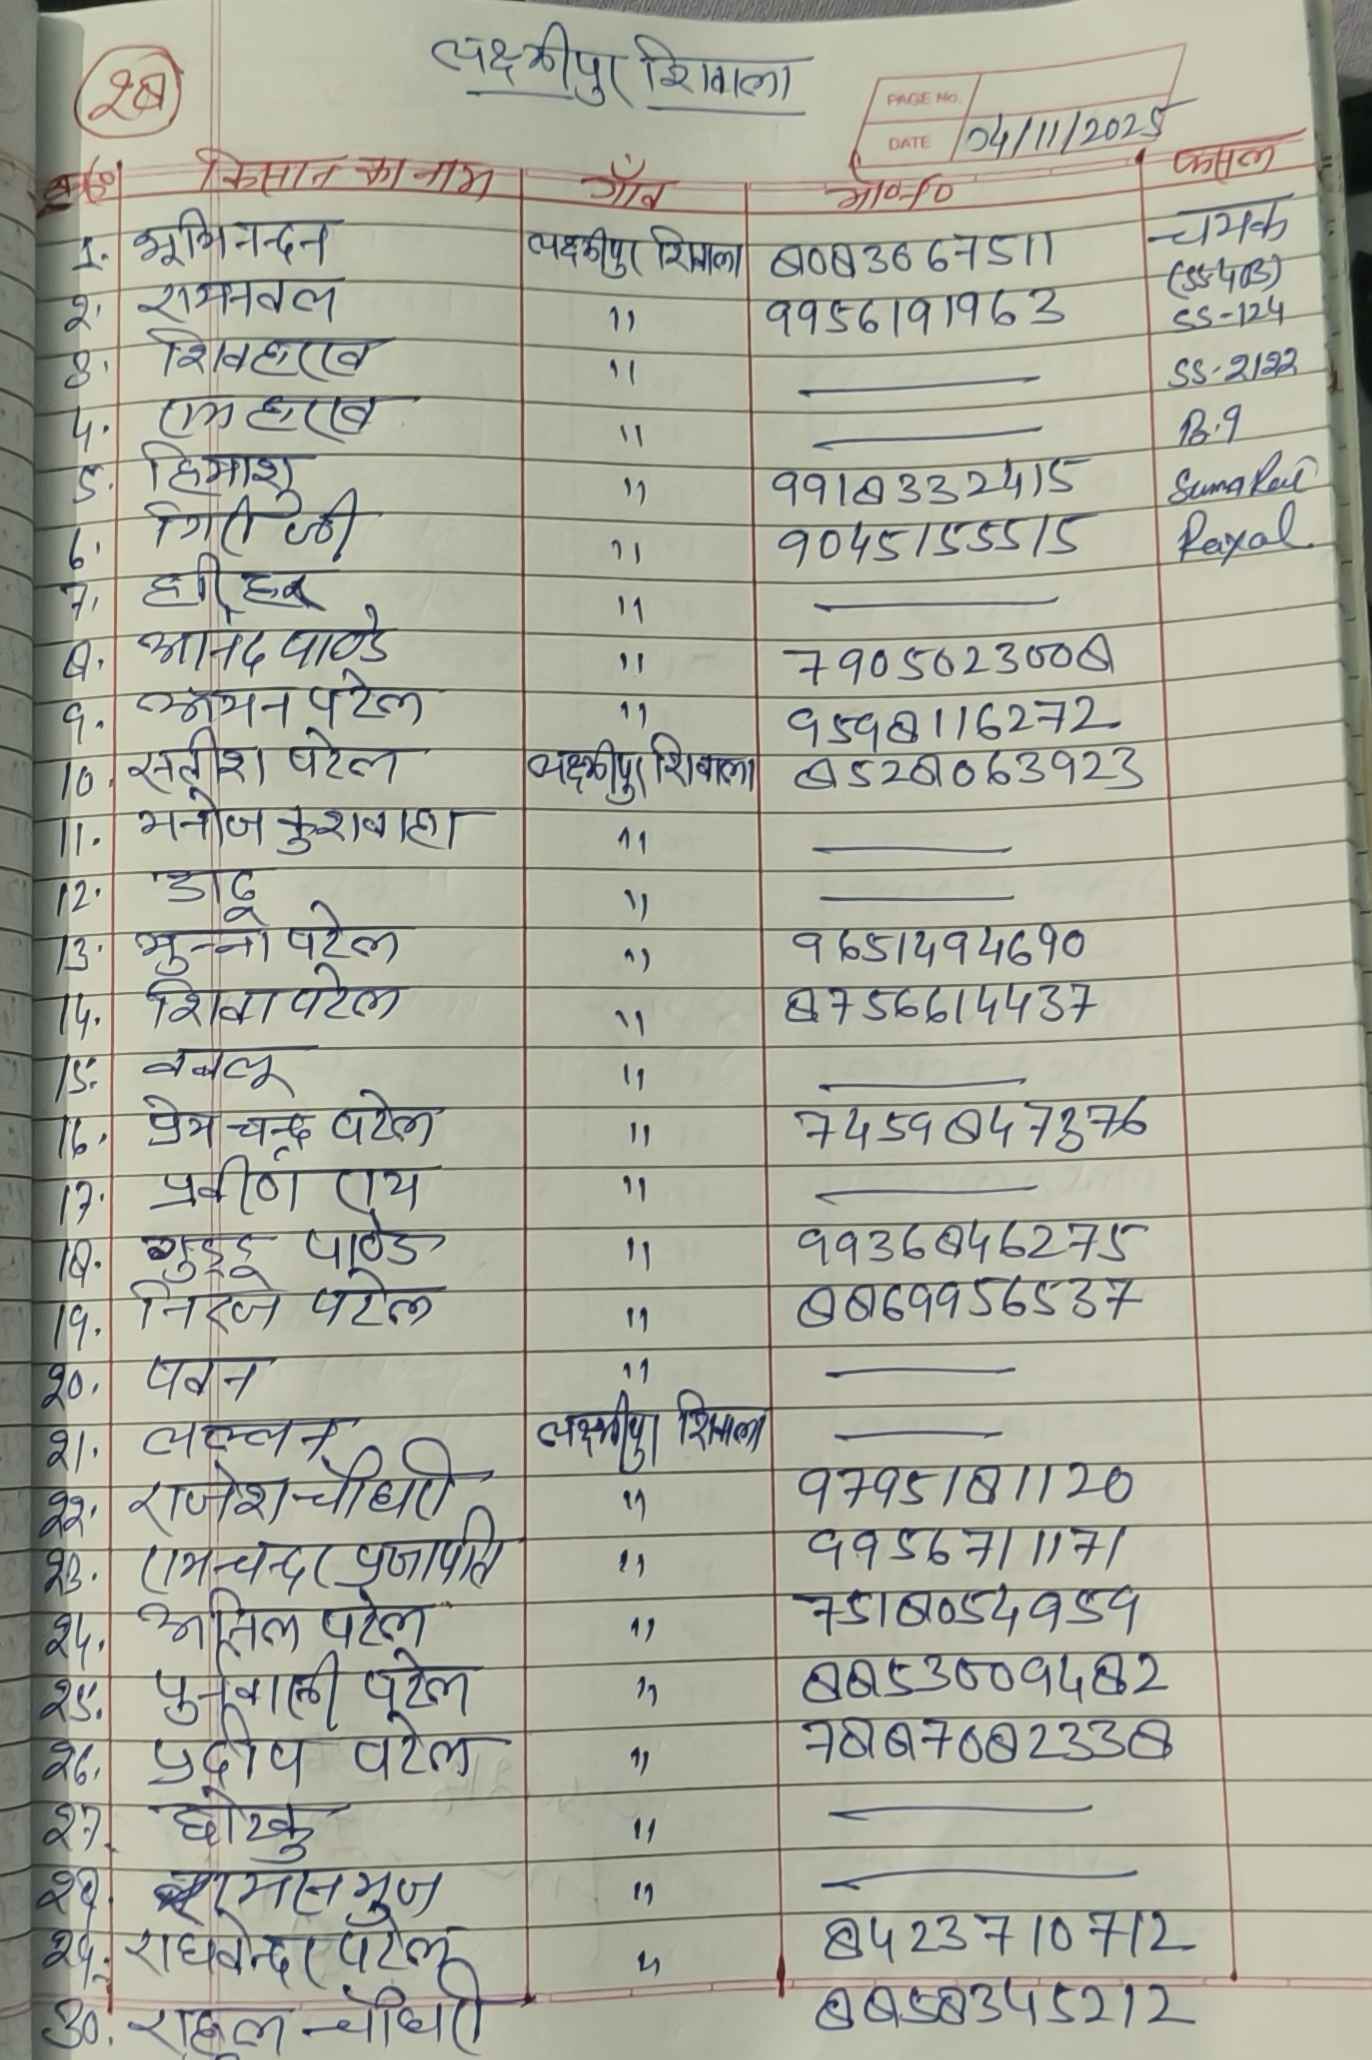 लक्ष्मीपुर शिवाला
28
PAGE NO.
DATE 04/11/2025
क्र०सं० किसान का नाम गाँव मो०न० फसल
1. भूमिनन्दन लक्ष्मीपुर शिवाला 8083667511 चमक
(SS-403)
2. रामनवल " 9956191963 SS-124
3. शिवहरख " — SS-2122
4. रामहरख " — B.9
5. हिमाशु " 9918332415
6. गिरी जी " 9045155515 Raxal
7. हरिहर " —
8. आनंद पाण्डे " 7905023008
9. अमन पटेल " 9598116272
10. सतीश पटेल लक्ष्मीपुर शिवाला 8528063923
11. मनोज कुशवाहा " —
12. डाढू " —
13. मुन्ना पटेल " 9651494690
14. शिवा पटेल " 8756614437
15. बबलू " —
16. प्रेमचन्द्र पटेल " 7459847376
17. प्रवीण राय " —
18. गुड्डू पाण्डे " 9936846275
19. निरज पटेल " 8869956537
20. पवन " —
21. लल्लन लक्ष्मीपुर शिवाला —
22. राजेश चौधरी " 9795181120
23. रामचन्दर प्रजापति " 9956711171
24. अनिल पटेल " 7518054959
25. पुनवासी पटेल " 8853009482
26. प्रदीप पटेल " 7887082338
27. छोटकु " —
28. " —
29. राघवेन्दर पटेल " 8423710712
30. राहुल चौधरी 8858345212